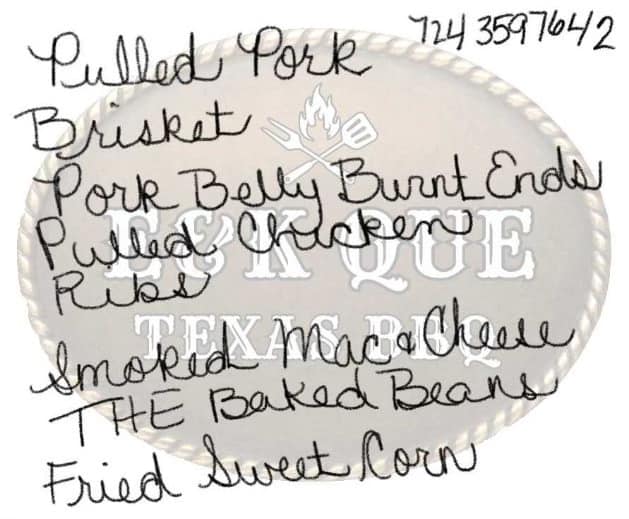 724 3597642
Pulled Pork
Brisket
Pork Belly Burnt Ends
Pulled Chicken
E&K QUE
Ribs
TEXAS BBQ
Smoked Mac & Cheese
THE Baked Beans
Fried Sweet Corn